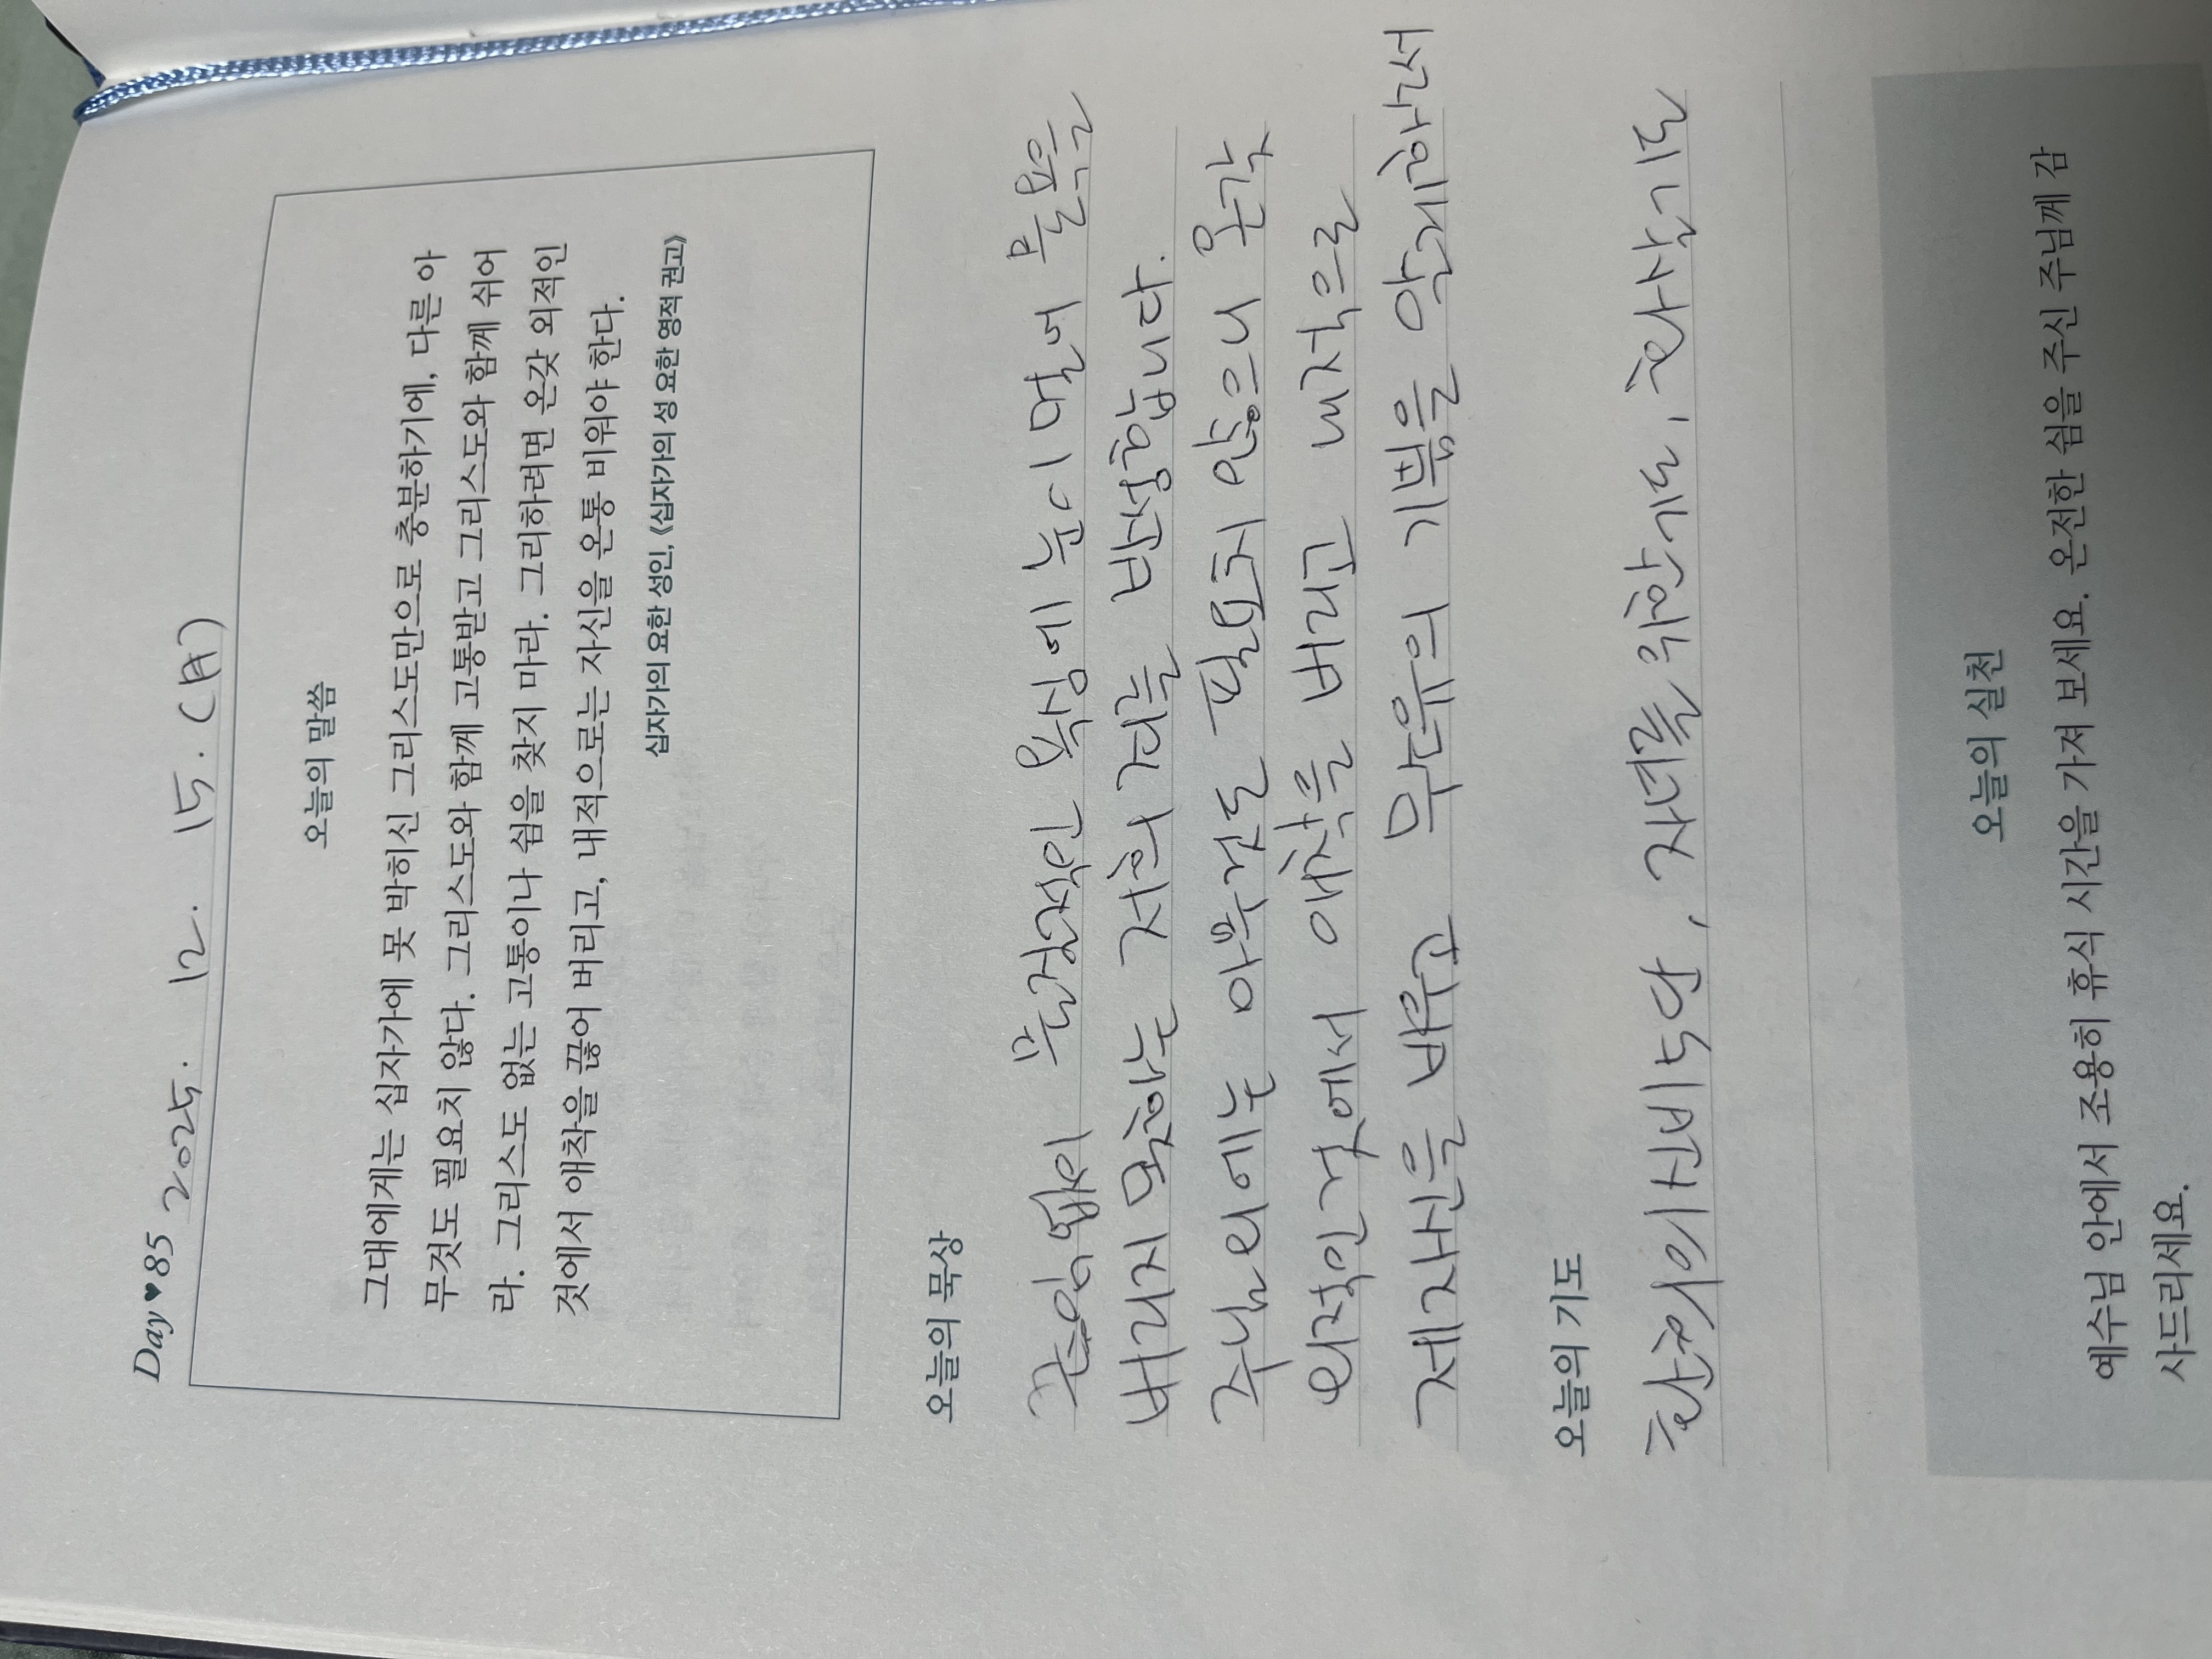 Day ♥ 85
2025. 12. 15. (月)
오늘의 말씀
그대에게는 십자가에 못 박히신 그리스도만으로 충분하기에, 다른 아
무것도 필요치 않다. 그리스도와 함께 고통받고 그리스도와 함께 쉬어
라. 그리스도 없는 고통이나 쉼을 찾지 마라. 그리하려면 온갖 외적인
것에서 애착을 끊어 버리고, 내적으로는 자신을 온통 비워야 한다.
십자가의 요한 성인, 《십자가의 성 요한 영적 권고》
오늘의 묵상
끊임없이 부정적인 욕심에 눈이 멀어 물욕을
버리지 못하는 저희 건을 반성합니다.
주님 외에는 아무것도 필요치 않으니 온갖
외적인 것에서 애착을 버리고 내적으로
제 자신을 비우고 무소유의 기쁨을 알게 하소서
오늘의 기도
환희의 신비 5단, 자녀를 위한 기도, 화살기도
오늘의 실천
예수님 안에서 조용히 휴식 시간을 가져 보세요. 온전한 쉼을 주신 주님께 감
사드리세요.